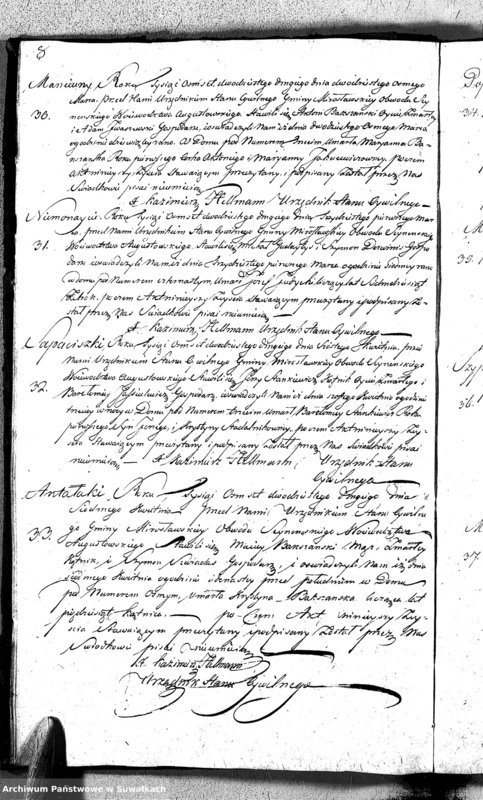 8
Mareiuny Roku Tysiąc Osmset dwudziestego drugiego dnia dwudziestego osmego
Marca. przed Nami Urzędnikiem Stanu Cywilnego Gminy Mirosławskiey Obwodu Sey-
30. nenskiego Woiewodztwa Augustowskiego. Stawili się Antoni Bakszanski Oyciec zmarłey
i Adam Gospodarz, i oswiadczyli Nam iż dnia dwudziestego osmego Marca
w Domu pod Numerem umarła Maryanna Ba-
Roku pierwszego Corka Antoniego i Maryanny poczem
Akt ninieyszy Zeyscia Stawaiącym przeczytany, i podpisany został przez Nas
Swiadkowie pisać nieumieią
X. Kazimierz Hellmann Urzędnik Stanu Cywilnego
Niemonaycie. Roku Tysiąc Osmset dwudziestego drugiego dnia trzydziestego pierwszego Mar-
ca. przed Nami Urzędnikiem Stanu Cywilnego Gminy Mirosławskiey Obwodu Seynenskiego
31. Woiewodztwa Augustowskiego. Stawili się Michał i Szymon Gospo-
darze i oswiadczyli Nam iż dnia trzydziestego pierwszego Marca o godzinie siodmey rano
w domu pod Numerem czternastym, Umarł Józef liczący lat Siedmdziesiąt
poczem Akt ninieyszy Zeyscia Stawaiącym przeczytany i podpisany zo-
stał przez Nas Swiadkowie pisać nieumieią
X. Kazimierz Hellmann Urzędnik Stanu Cywilnego
Łapaciszki Roku Tysiąc Osmset dwudziestego drugiego dnia Szostego Kwietnia. przed
Nami Urzędnikiem Stanu Cywilnego Gminy Mirosławskiey Obwodu Seynenskiego
32. Woiewodztwa Augustowskiego Stawili się Jerzy Stankiewicz Oyciec zmarłego i
Bartłomiey Gospodarz, i oswiadczyli Nam iż dnia szostego Kwietnia o godzinie
w nocy w Domu pod Numerem trzecim Umarł Bartłomiey Stankiewicz Roku
Syn Jerzego, i Krystyny poczem Akt ninieyszy Zey-
scia Stawaiącym przeczytany i podpisany został przez Nas Swiadkowie pisać
nieumieią X. Kazimierz Hellmann Urzędnik Stanu
Cywilnego
Antałaki, Roku Tysiąc Osmset dwudziestego drugiego dnia
Siodmego Kwietnia przed Nami Urzędnikiem Stanu Cywilne-
33. go Gminy Mirosławskiey Obwodu Seynenskiego Woiewodztwa
Augustowskiego Stawili się Maciey Bakszanski Mąż Zmarłey
Kątnik, i Szymon Gospodarz, i oswiadczyli Nam iż dnia
siodmego Kwietnia o godzinie iedenastey przed południem w Domu
pod Numerem Osmym, Umarła Krystyna Bakszanska licząca lat
pięcdziesiąt Kątnica. po Czem Akt ninieyszy Zey-
scia Stawaiącym przeczytany i podpisany został przez Nas
Swiadkowie pisać nieumieią
X. Kazimierz Hellmann
Urzędnik Stanu Cywilnego
34.
35.
36.
37.
Archiwum Państwowe w Suwałkach